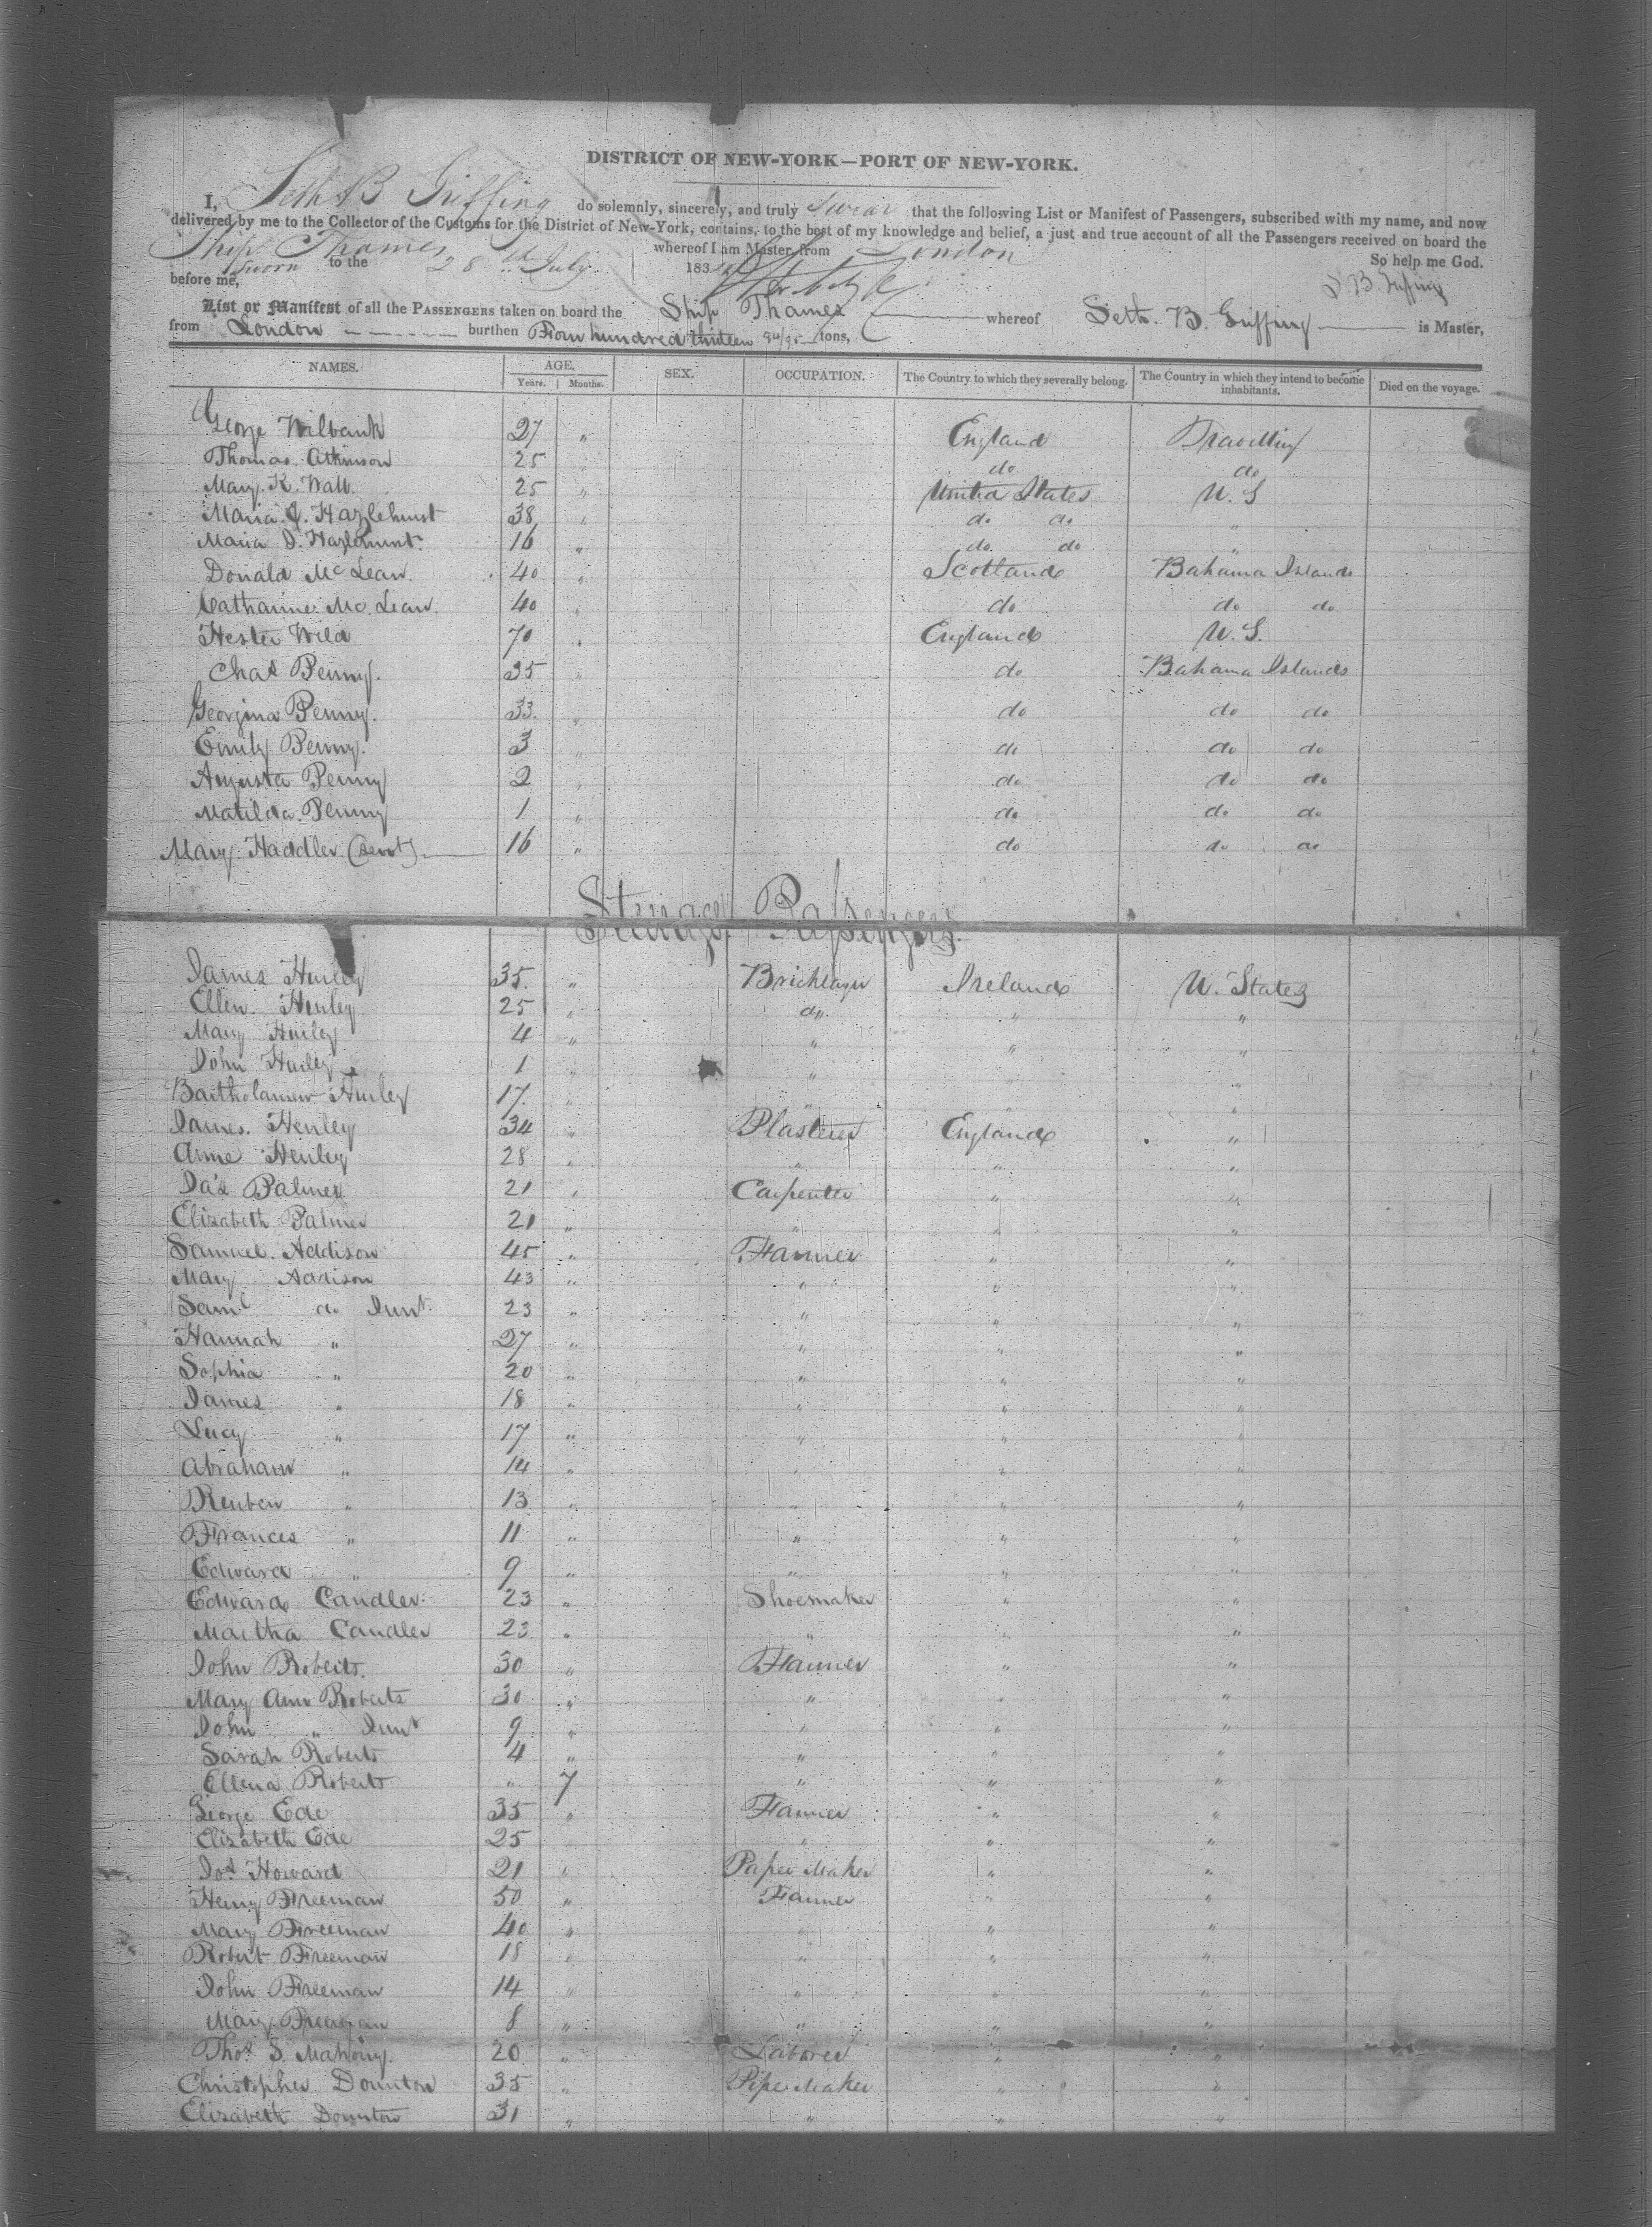 DISTRICT OF NEW-YORK—PORT OF NEW-YORK.
I, Seth B Griffing do solemnly, sincerely, and truly swear that the following List or Manifest of Passengers, subscribed with my name, and now
delivered by me to the Collector of the Customs for the District of New-York, contains, to the best of my knowledge and belief, a just and true account of all the Passengers received on board the
Ship Thames whereof I am Master, from London
Sworn to the 28th July 183 So help me God.
before me, S. B. Griffing
List or Manifest of all the PASSENGERS taken on board the Ship Thames whereof Seth. B. Griffing is Master,
from London burthen Four hundred thirteen 94/95 tons,
NAMES. AGE. SEX. OCCUPATION. The Country to which they severally belong. The Country in which they intend to become inhabitants. Died on the voyage.
Years. Months.
George Wilbank 27 " England Travelling
Thomas Atkinson 25 " do do
Mary. K. Wall. 25 " United States U. S
Maria. J. Hazlehurst 38 " do do "
Maria J. Hazlehurst. 16 " do. do "
Donald Mc Lean. 40 " Scotland Bahama Islands
Catharine Mc. Lean. 40 " do do do
Hester Wild 70 " England U. S.
Chas Penny. 35 " do Bahama Islands
Georgina Penny. 33. " do do do
Emily Penny. 3 " do do do
Augusta Penny 2 " do do do
Matilda Penny 1 " do do do
Mary Haddler (Servt) 16 " do do do
Steerage Passengers.
James Hurley 35. " Bricklayer Ireland U. States
Ellen. Hurley 25 " do. " "
Mary Hurley 4 " " " "
John Hurley 1 " " " "
Bartholamew Hurley 17. " " " "
James. Henley 34 " Plasterer England "
Anne Henley 28 " " " "
Jas Palmer 21 " Carpenter " "
Elizabeth Palmer 21 " " " "
Samuel. Addison 45 " Farmer " "
Mary Addison 43 " " " "
Saml do Junr 23 " " " "
Hannah " 27 " " " "
Sophia " 20 " " " "
James " 18 " " " "
Lucy " 17 " " " "
Abraham " 14 " " " "
Reuben " 13 " " " "
Frances " 11 " " " "
Edward " 9 " " " "
Edward Candler 23 " Shoemaker " "
Martha Candler 23 " " " "
John Roberts. 30 " Farmer " "
Mary Ann Roberts 30 " " " "
John " Junr 9 " " " "
Sarah Roberts 4 " " " "
Ellena Roberts " 7 " " "
George Ede 35 " Farmer " "
Elizabeth Ede 25 " " "
Jos Howard 21 " Paper Maker " "
Henry Freeman 50 " Farmer " "
Mary Freeman 40 " " " "
Robert Freeman 18 " " " "
John Freeman 14 " " " "
Mary Freeman 8 " " " "
Thos S. Mahony. 20 " Laborer " "
Christopher Downton 35 " Pipe Maker " "
Elizabeth Downton 31 " " " "